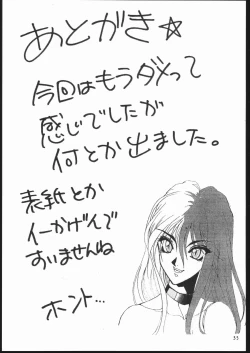 あとがき☆
今回はもうダメって
感じでしたが
何とか出ました。
表紙とか
イーかげんで
すいませんね
ホント…
33